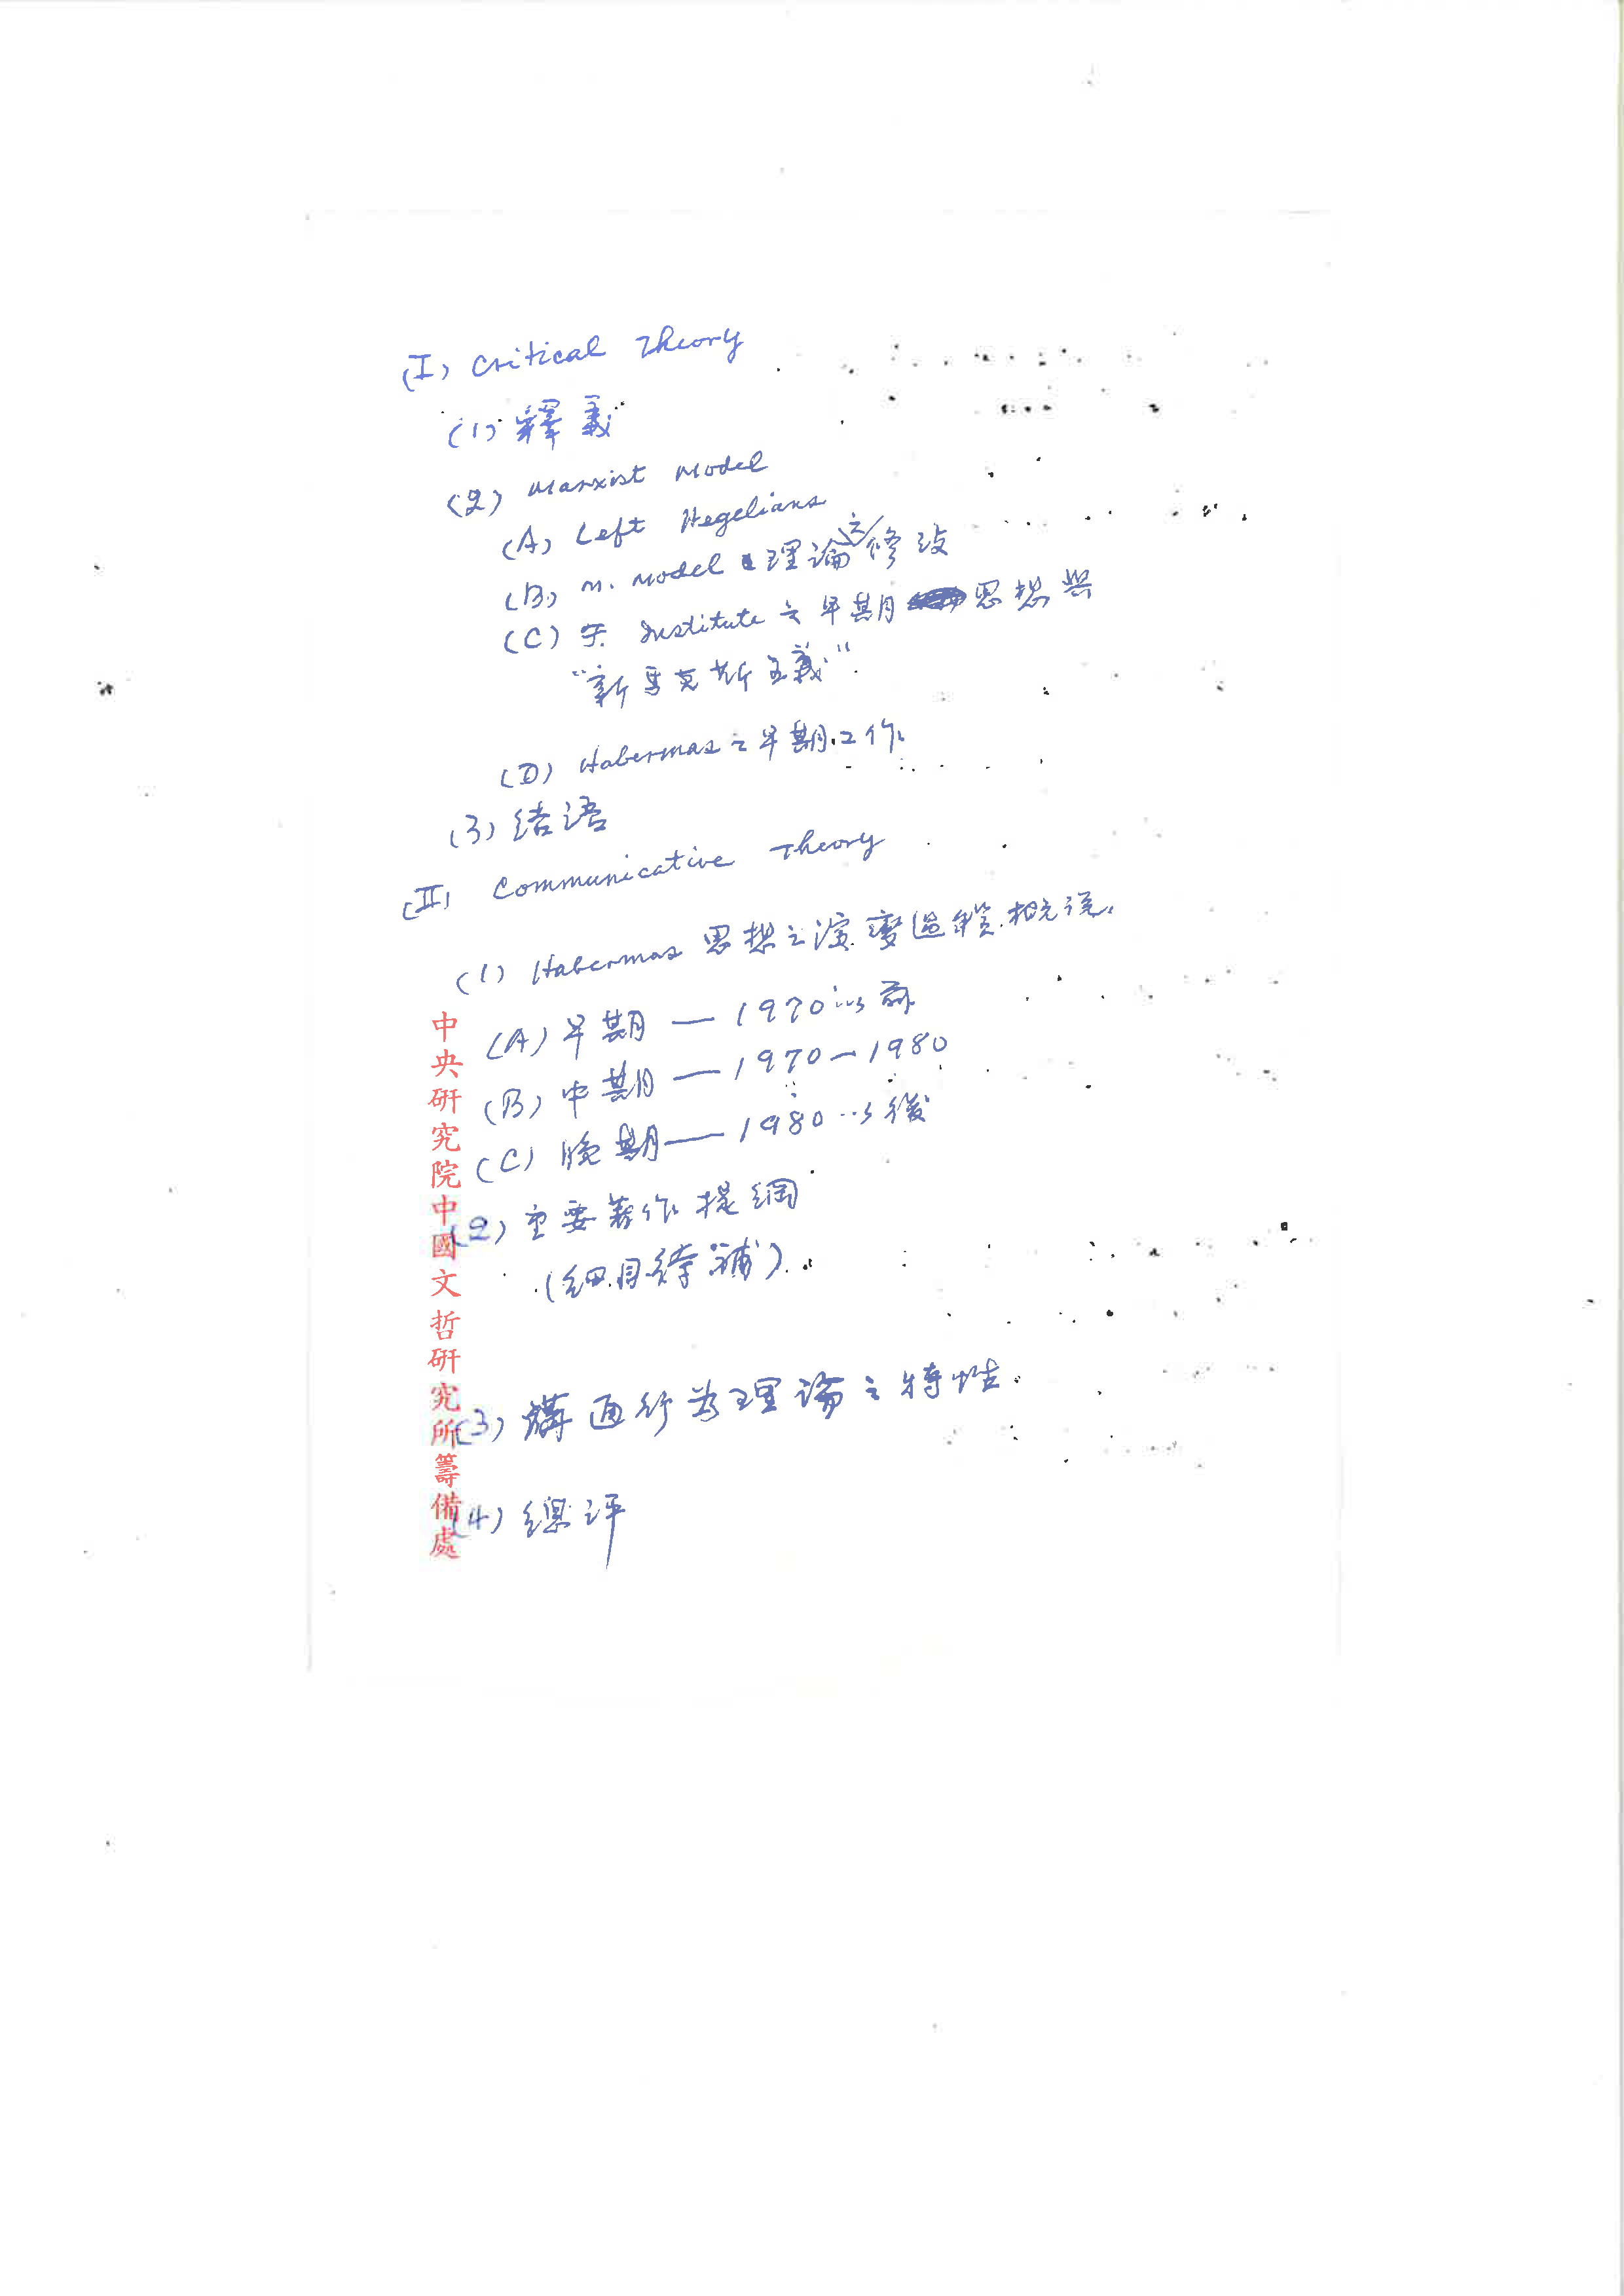 (I) Critical Theory
(1) 釋義
(2) Marxist Model
(A) Left Hegelians
(B) M. Model 理論之修改
(C) Institute 之早期思想與
"新馬克斯主義"
(D) Habermas 之早期工作
(3) 結語
(II) Communicative Theory
(1) Habermas 思想之演變過程概說.
(A) 早期 — 1970 以前
(B) 中期 — 1970 — 1980
(C) 晚期 — 1980 以後
(2) 主要著作提綱
(細目待補)
(3) 溝通行為理論之特性
(4) 總評
中央研究院中國文哲研究所籌備處